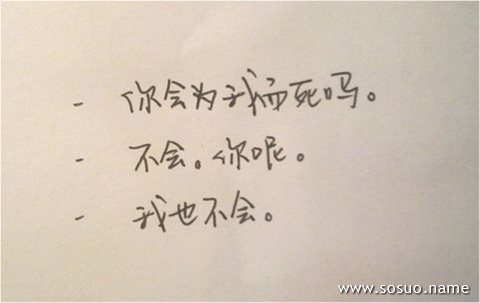 - 你会为我而死吗。
- 不会。你呢。
- 我也不会。
www.sosuo.name